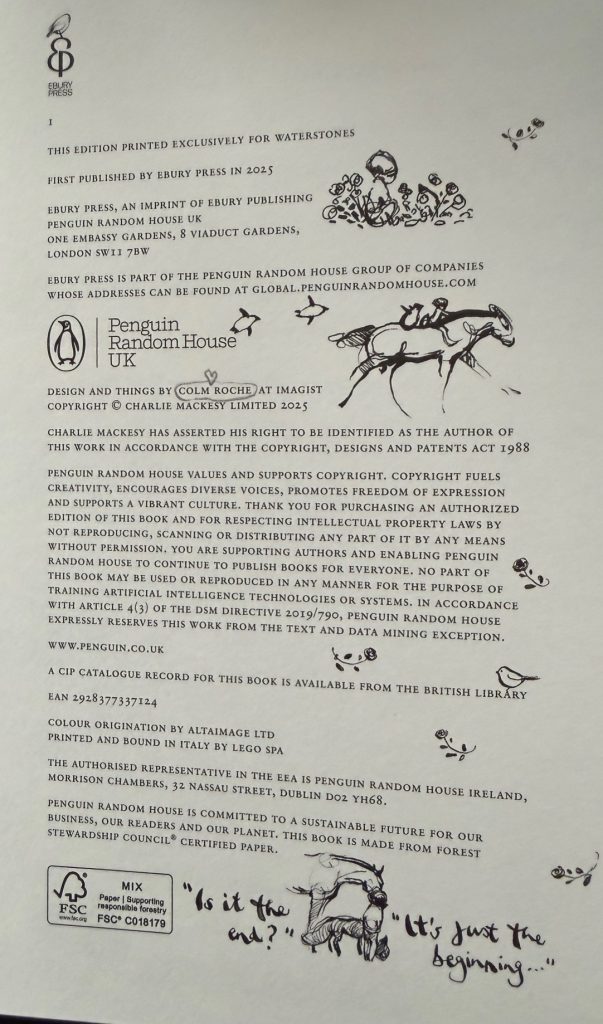 EBURY
PRESS
1
THIS EDITION PRINTED EXCLUSIVELY FOR WATERSTONES
FIRST PUBLISHED BY EBURY PRESS IN 2025
EBURY PRESS, AN IMPRINT OF EBURY PUBLISHING
PENGUIN RANDOM HOUSE UK
ONE EMBASSY GARDENS, 8 VIADUCT GARDENS,
LONDON SW11 7BW
EBURY PRESS IS PART OF THE PENGUIN RANDOM HOUSE GROUP OF COMPANIES
WHOSE ADDRESSES CAN BE FOUND AT GLOBAL.PENGUINRANDOMHOUSE.COM
Penguin
Random House
UK
DESIGN AND THINGS BY COLM ROCHE AT IMAGIST
COPYRIGHT © CHARLIE MACKESY LIMITED 2025
CHARLIE MACKESY HAS ASSERTED HIS RIGHT TO BE IDENTIFIED AS THE AUTHOR OF
THIS WORK IN ACCORDANCE WITH THE COPYRIGHT, DESIGNS AND PATENTS ACT 1988
PENGUIN RANDOM HOUSE VALUES AND SUPPORTS COPYRIGHT. COPYRIGHT FUELS
CREATIVITY, ENCOURAGES DIVERSE VOICES, PROMOTES FREEDOM OF EXPRESSION
AND SUPPORTS A VIBRANT CULTURE. THANK YOU FOR PURCHASING AN AUTHORIZED
EDITION OF THIS BOOK AND FOR RESPECTING INTELLECTUAL PROPERTY LAWS BY
NOT REPRODUCING, SCANNING OR DISTRIBUTING ANY PART OF IT BY ANY MEANS
WITHOUT PERMISSION. YOU ARE SUPPORTING AUTHORS AND ENABLING PENGUIN
RANDOM HOUSE TO CONTINUE TO PUBLISH BOOKS FOR EVERYONE. NO PART OF
THIS BOOK MAY BE USED OR REPRODUCED IN ANY MANNER FOR THE PURPOSE OF
TRAINING ARTIFICIAL INTELLIGENCE TECHNOLOGIES OR SYSTEMS. IN ACCORDANCE
WITH ARTICLE 4(3) OF THE DSM DIRECTIVE 2019/790, PENGUIN RANDOM HOUSE
EXPRESSLY RESERVES THIS WORK FROM THE TEXT AND DATA MINING EXCEPTION.
WWW.PENGUIN.CO.UK
A CIP CATALOGUE RECORD FOR THIS BOOK IS AVAILABLE FROM THE BRITISH LIBRARY
EAN 2928377337124
COLOUR ORIGINATION BY ALTAIMAGE LTD
PRINTED AND BOUND IN ITALY BY LEGO SPA
THE AUTHORISED REPRESENTATIVE IN THE EEA IS PENGUIN RANDOM HOUSE IRELAND,
MORRISON CHAMBERS, 32 NASSAU STREET, DUBLIN D02 YH68.
PENGUIN RANDOM HOUSE IS COMMITTED TO A SUSTAINABLE FUTURE FOR OUR
BUSINESS, OUR READERS AND OUR PLANET. THIS BOOK IS MADE FROM FOREST
STEWARDSHIP COUNCIL® CERTIFIED PAPER.
FSC
www.fsc.org
MIX
Paper | Supporting
responsible forestry
FSC® C018179
"Is it the
end?"
"It's just the
beginning..."